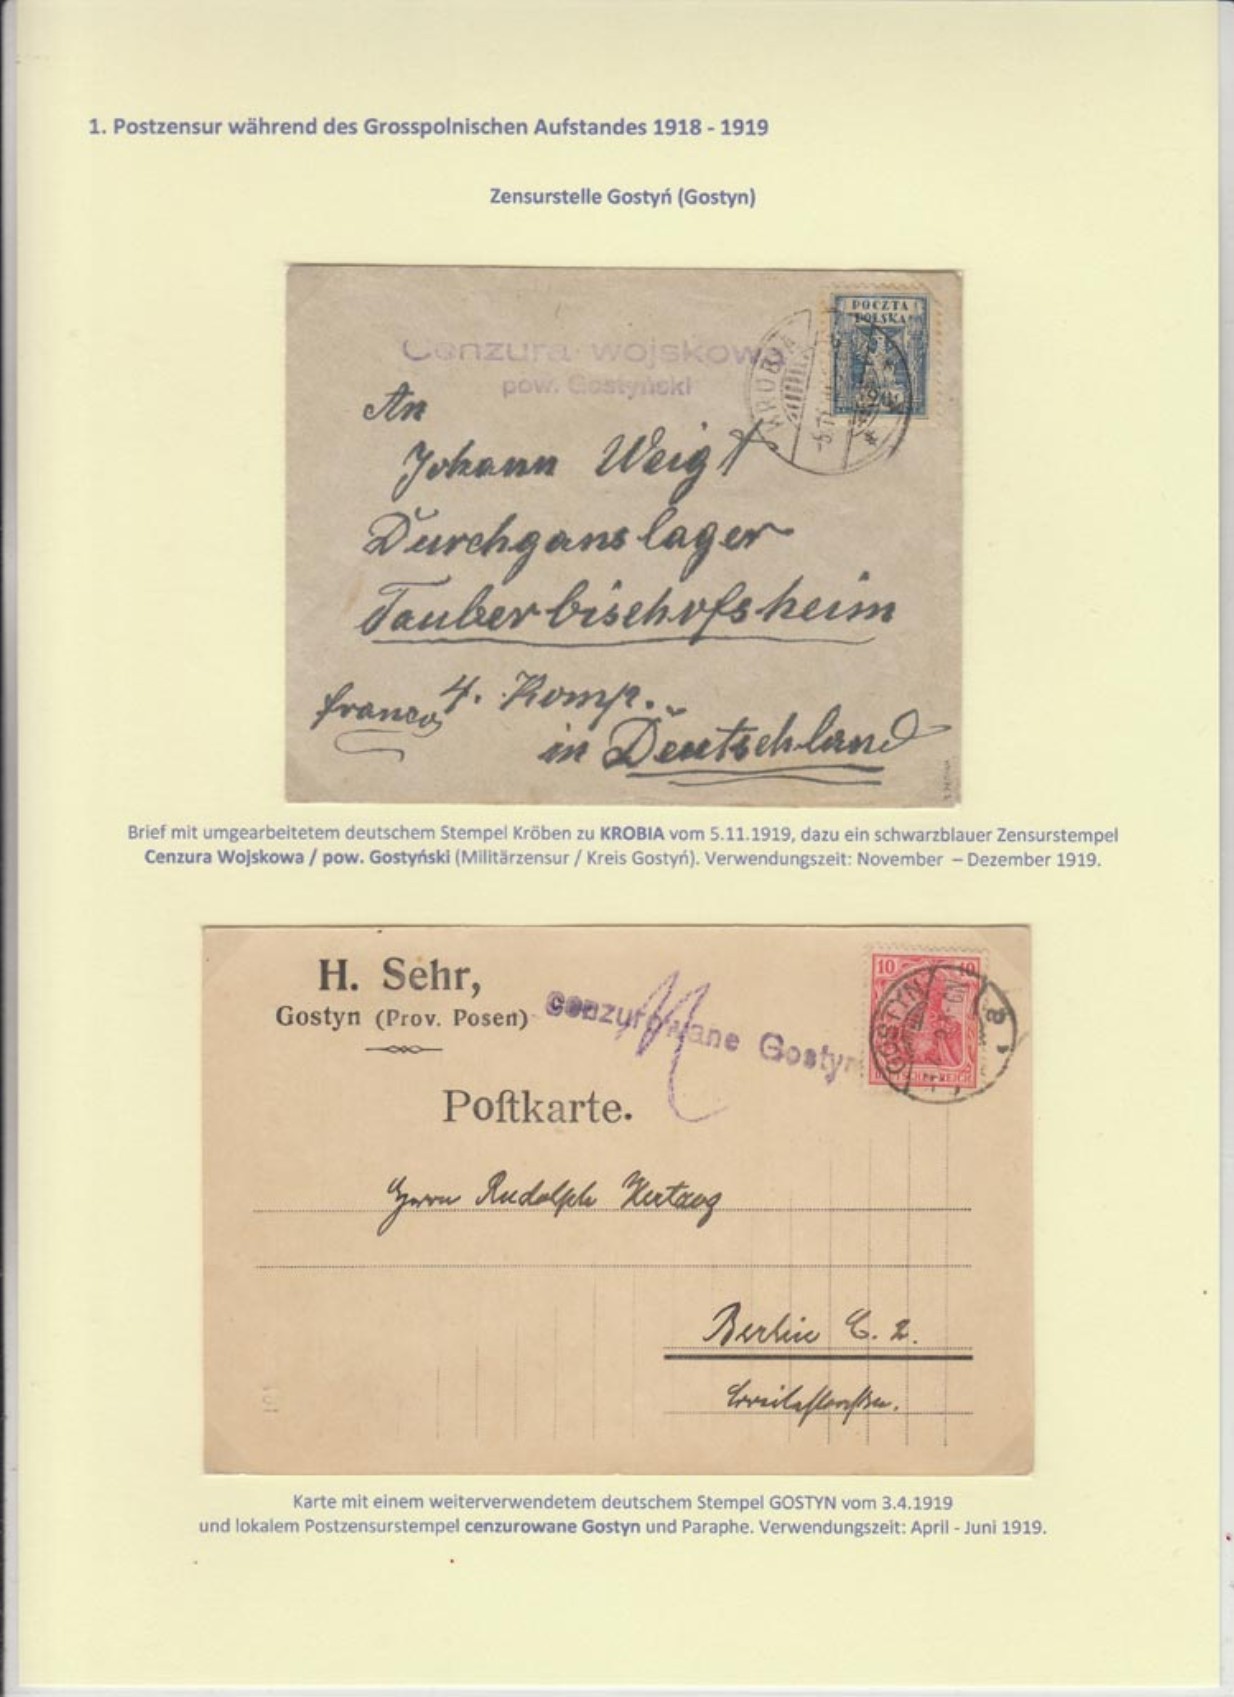 1. Postzensur während des Grosspolnischen Aufstandes 1918 - 1919
Zensurstelle Gostyń (Gostyn)
POCZTA
POLSKA
20
KROBIA
Cenzura wojskowa
pow. Gostyński
An
Johann Weigt
Durchganslager
Tauberbischofsheim
4. Komp.
franco
in Deutschland
Brief mit umgearbeitetem deutschem Stempel Kröben zu KROBIA vom 5.11.1919, dazu ein schwarzblauer Zensurstempel
Cenzura Wojskowa / pow. Gostyński (Militärzensur / Kreis Gostyń). Verwendungszeit: November – Dezember 1919.
H. Sehr,
Gostyn (Prov. Posen)
cenzurowane Gostyn
10 10
GOSTYN
Poſtkarte.
Herrn Rudolph Hertzog
Berlin C. 2.
Breitestrasse.
Karte mit einem weiterverwendetem deutschem Stempel GOSTYN vom 3.4.1919
und lokalem Postzensurstempel cenzurowane Gostyn und Paraphe. Verwendungszeit: April - Juni 1919.